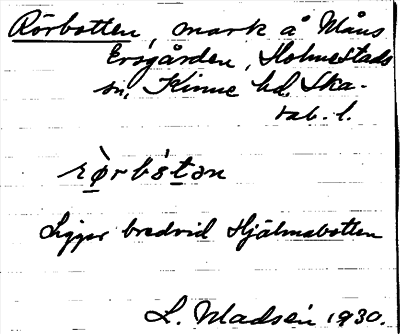 Rörbotten, mark å Måns
Ersgården, Holmestads
sn, Kinne hd. Ska-
rab. l.
rø̀rbòtən
Ligger bredvid Hjälmabotten
L. Madsén 1930.